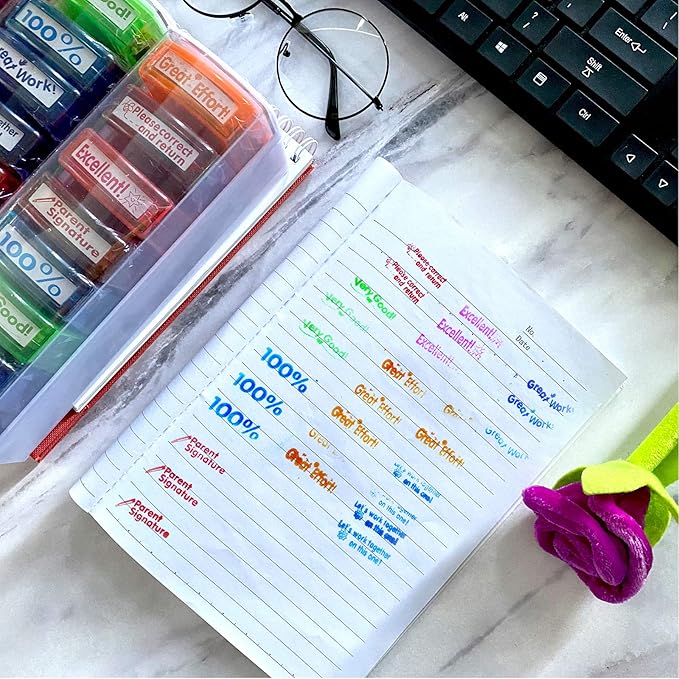 100%
Good!
Great Work!
Together
Great Effort!
Please correct
...and return
Excellent!
Parent
Signature
100%
Good!
Alt
Shift
Enter
Ctrl
No.
Date
Please correct
...and return
Please correct
...and return
Excellent!
Excellent!
Excellent!
Very Good!
Very Good!
Great Work!
Great Work!
Great Work!
100%
100%
100%
Great Effort!
Great Effort!
Great Effort!
Great Effort!
Great
Great Effort!
Great
Let's work together
on this one!
Let's work together
on this one!
Let's work together
on this one!
Let's work together
on this one!
Parent
Signature
Parent
Signature
Parent
Signature